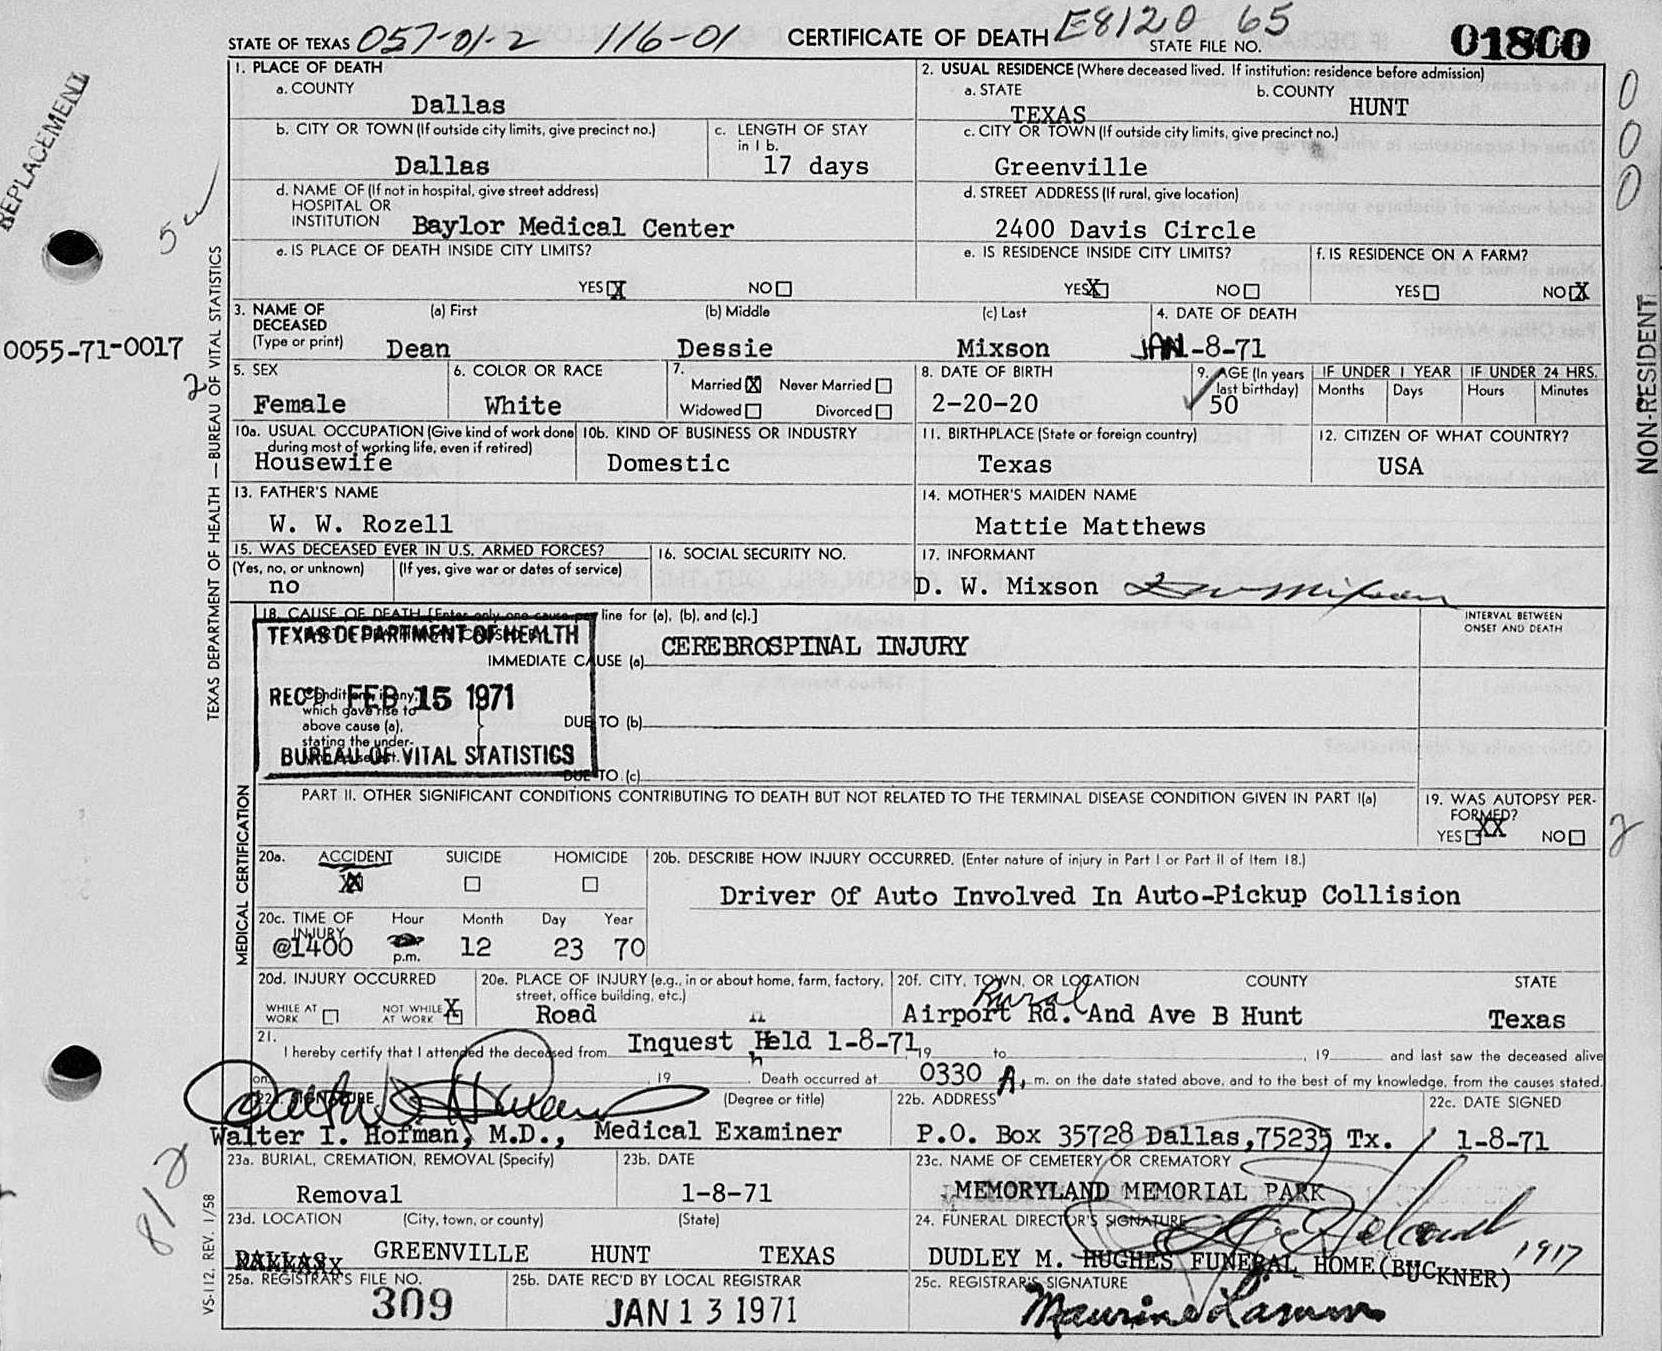 STATE OF TEXAS 057-01-2 116-01 CERTIFICATE OF DEATH E8120 65 STATE FILE NO. 01800
REPLACEMENT
1. PLACE OF DEATH
a. COUNTY
Dallas
2. USUAL RESIDENCE (Where deceased lived. If institution: residence before admission)
a. STATE
TEXAS
b. COUNTY
HUNT
0
0
0
b. CITY OR TOWN (If outside city limits, give precinct no.)
Dallas
c. LENGTH OF STAY in 1 b.
17 days
c. CITY OR TOWN (If outside city limits, give precinct no.)
Greenville
d. NAME OF (If not in hospital, give street address)
HOSPITAL OR
INSTITUTION Baylor Medical Center
d. STREET ADDRESS (If rural, give location)
2400 Davis Circle
e. IS PLACE OF DEATH INSIDE CITY LIMITS?
YES X NO
e. IS RESIDENCE INSIDE CITY LIMITS?
YES X NO
f. IS RESIDENCE ON A FARM?
YES NO X
3. NAME OF DECEASED (Type or print)
(a) First (b) Middle (c) Last
Dean Dessie Mixson
4. DATE OF DEATH
JAN-8-71
0055-71-0017
2
TEXAS DEPARTMENT OF HEALTH — BUREAU OF VITAL STATISTICS
NON-RESIDENT
5. SEX
Female
6. COLOR OR RACE
White
7.
Married X Never Married
Widowed Divorced
8. DATE OF BIRTH
2-20-20
9. AGE (In years last birthday)
50
IF UNDER 1 YEAR IF UNDER 24 HRS.
Months Days Hours Minutes
10a. USUAL OCCUPATION (Give kind of work done during most of working life, even if retired)
Housewife
10b. KIND OF BUSINESS OR INDUSTRY
Domestic
11. BIRTHPLACE (State or foreign country)
Texas
12. CITIZEN OF WHAT COUNTRY?
USA
13. FATHER'S NAME
W. W. Rozell
14. MOTHER'S MAIDEN NAME
Mattie Matthews
15. WAS DECEASED EVER IN U.S. ARMED FORCES?
(Yes, no, or unknown) (If yes, give war or dates of service)
no
16. SOCIAL SECURITY NO.
17. INFORMANT
D. W. Mixson D W Mixson
18. CAUSE OF DEATH [Enter only one cause per line for (a), (b), and (c).]
INTERVAL BETWEEN
ONSET AND DEATH
TEXAS DEPARTMENT OF HEALTH
REC'D FEB 15 1971
BUREAU OF VITAL STATISTICS
IMMEDIATE CAUSE (a) CEREBROSPINAL INJURY
Conditions, if any,
which gave rise to
above cause (a),
stating the under-
DUE TO (b)
DUE TO (c)
MEDICAL CERTIFICATION
PART II. OTHER SIGNIFICANT CONDITIONS CONTRIBUTING TO DEATH BUT NOT RELATED TO THE TERMINAL DISEASE CONDITION GIVEN IN PART I(a)
19. WAS AUTOPSY PER-
FORMED?
YES XX NO
2
20a. ACCIDENT SUICIDE HOMICIDE
20b. DESCRIBE HOW INJURY OCCURRED. (Enter nature of injury in Part I or Part II of Item 18.)
Driver Of Auto Involved In Auto-Pickup Collision
20c. TIME OF INJURY Hour Month Day Year
@1400 p.m. 12 23 70
20d. INJURY OCCURRED
WHILE AT WORK NOT WHILE AT WORK X
20e. PLACE OF INJURY (e.g., in or about home, farm, factory, street, office building, etc.)
Road
20f. CITY, TOWN, OR LOCATION COUNTY STATE
Rural
Airport Rd. And Ave B Hunt Texas
21.
I hereby certify that I attended the deceased from Inquest Held 1-8-71, 19 to , 19 and last saw the deceased alive
on , 19 . Death occurred at 0330 A. m. on the date stated above, and to the best of my knowledge, from the causes stated.
22a. SIGNATURE (Degree or title)
Walter I. Hofman, M.D., Medical Examiner
22b. ADDRESS
P.O. Box 35728 Dallas,75235 Tx.
22c. DATE SIGNED
1-8-71
23a. BURIAL, CREMATION, REMOVAL (Specify)
Removal
23b. DATE
1-8-71
23c. NAME OF CEMETERY OR CREMATORY
MEMORYLAND MEMORIAL PARK
812
VS-112, REV. 1/58
23d. LOCATION (City, town, or county) (State)
GREENVILLE HUNT TEXAS
24. FUNERAL DIRECTOR'S SIGNATURE
1917
DUDLEY M. HUGHES FUNERAL HOME(BUCKNER)
25a. REGISTRAR'S FILE NO.
309
25b. DATE REC'D BY LOCAL REGISTRAR
JAN 13 1971
25c. REGISTRAR'S SIGNATURE